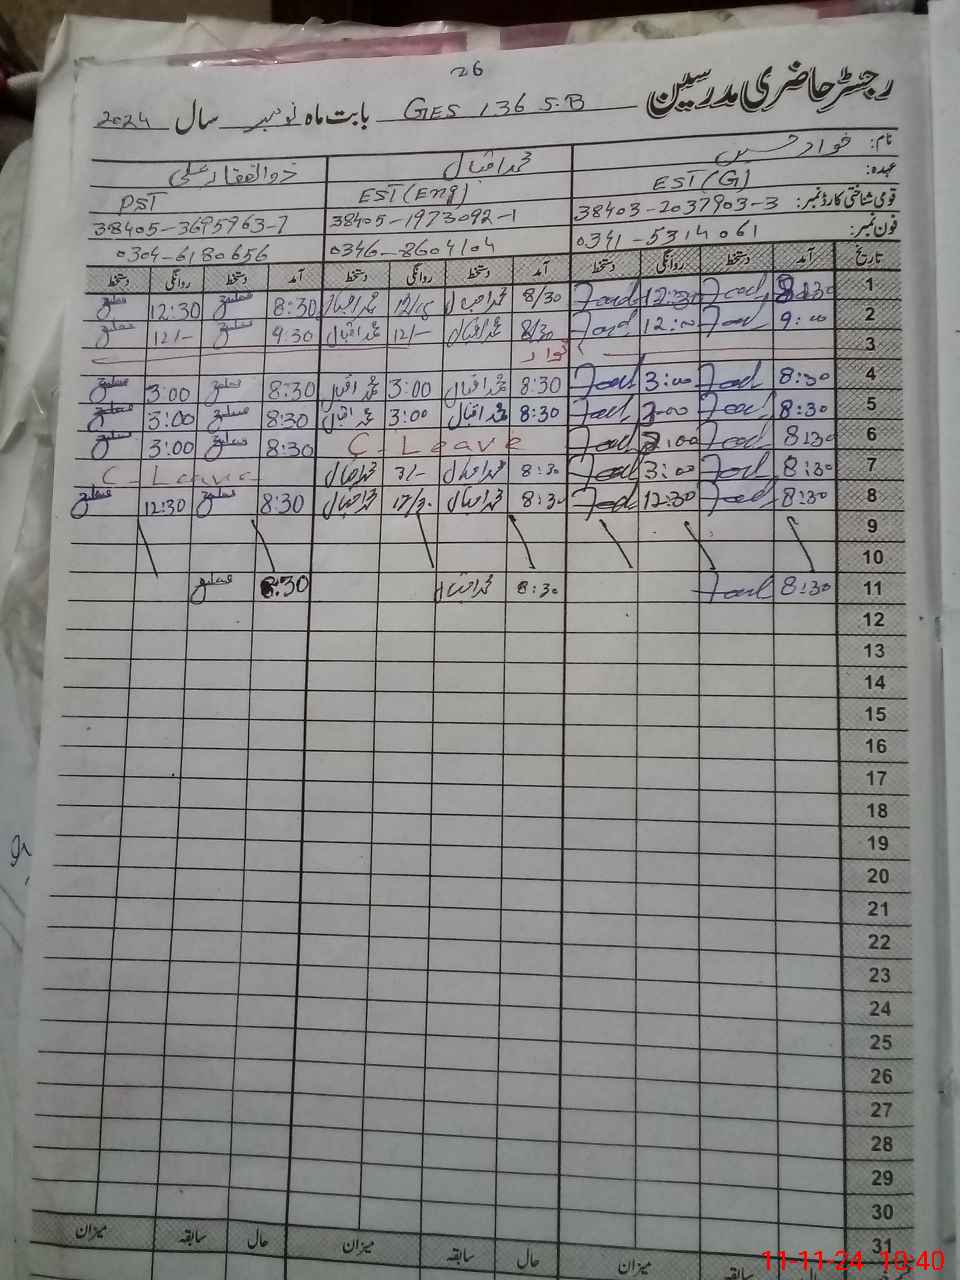 26
رجسٹر حاضری مدرسین GES 136 S.B بابت ماہ نومبر سال 2024
نام: فواد حسین محمد اقبال ذوالفقار علی
عہدہ: EST (G) EST (Eng) PST
قومی شناختی کارڈ نمبر: 38403-2037903-3 38405-1973092-1 38405-3695963-7
فون نمبر: 0341-5314061 0346-8604104 0304-6180656
تاریخ آمد دستخط روانگی دستخط آمد دستخط روانگی دستخط آمد دستخط روانگی دستخط
1 8:30 Foad 12:30 Foad 8/30 محمد اقبال 12/15 محمد اقبال 8:30 12:30
2 9:00 Foad 12:00 Foad 8/30 محمد اقبال 12/- محمد اقبال 9:30 12/-
3 اتوار
4 8:30 Foad 3:00 Foad 8:30 محمد اقبال 3:00 محمد اقبال 8:30 3:00
5 8:30 Foad 3:00 Foad 8:30 محمد اقبال 3:00 محمد اقبال 8:30 3:00
6 8:30 Foad 3:00 Foad C-Leave 8:30 3:00
7 8:30 Foad 3:00 Foad 8:30 محمد اقبال 3/- محمد اقبال C-Leave
8 8:30 Foad 12:30 Foad 8:30 محمد اقبال 12/30 محمد اقبال 8:30 12:30
9
10
11 8:30 Foad 8:30 محمد اقبال 8:30
12
13
14
15
16
17
18
19
20
21
22
23
24
25
26
27
28
29
30
31
حال سابقہ میزان حال سابقہ میزان میزان
11-11-24 10:40